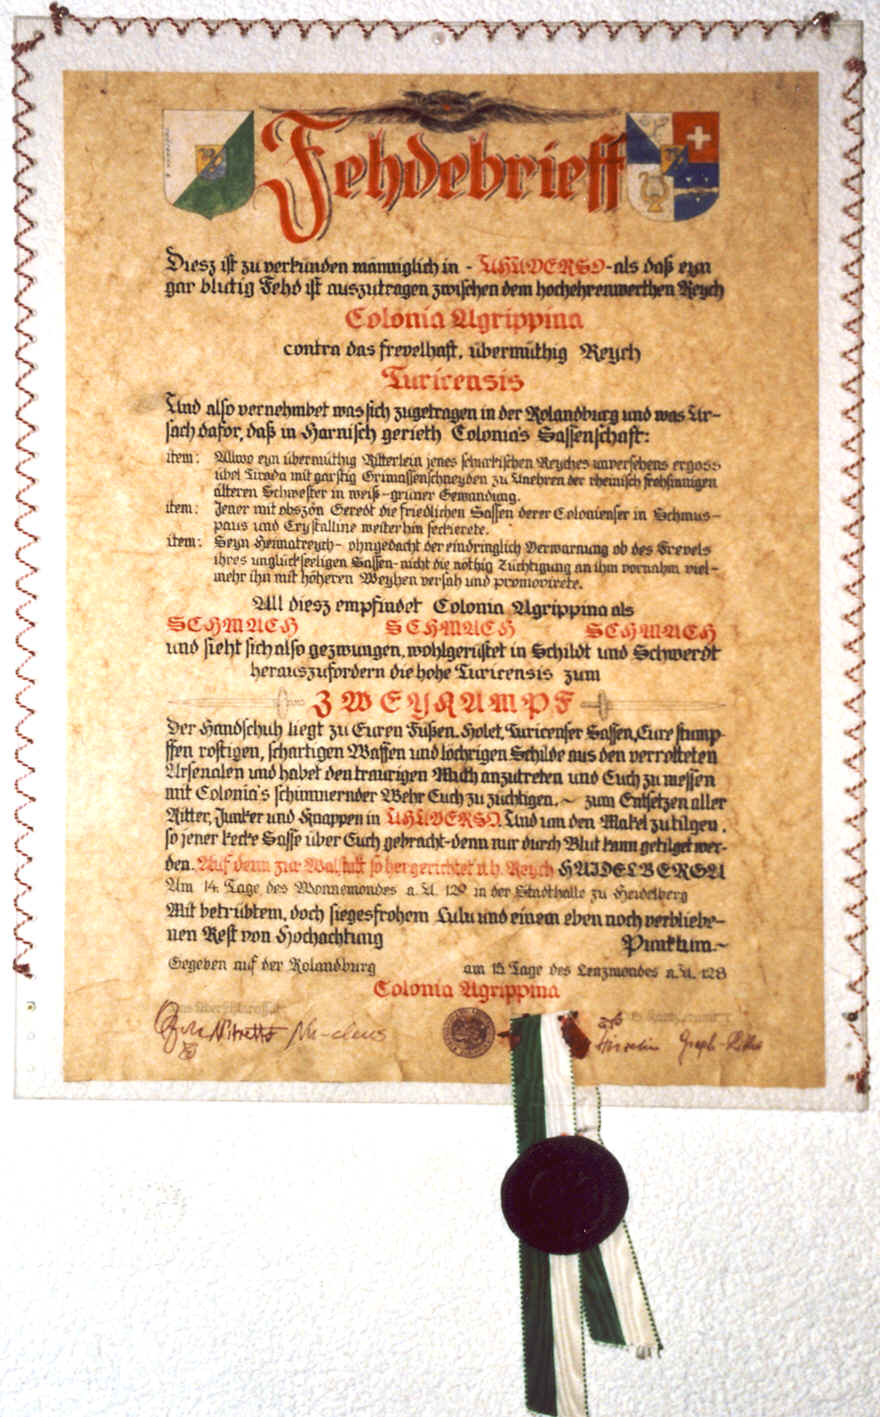 Fehdebrieff
Diesz ist zu verkunden männiglich in - UHUVERSO - als daß eyn
gar blutig Fehd ist auszutragen zwischen dem hochehrenwerthen Reych
Colonia Agrippina
contra das frevelhaft, übermüthig Reych
Turicensis
Und also vernehmbet was sich zugetragen in der Rolandburg und was Ur-
sach dafor, daß in Harnisch gerieth Colonia's Sassenschaft:
item: Allwo eyn übermüthig Ritterlein jenes schurkischen Reyches unversehens ergoss
übel Tirada mit garstig Grimassenschneyden zu Unehren der rheinisch frohsinnigen
älteren Schwester in weiß-grüner Gewandung.
item: Jener mit obszön Geredt die friedlichen Sassen derer Coloniensser in Schmus-
paus und Crystalline weiterhin seckierete.
item: Seyn Heimatreych - ohngedacht der eindringlich Verwarnung ob des Frevels
ihres unglückseeligen Sassen - nicht die nöthig Züchtigung an ihm vornahm viel-
mehr ihn mit höheren Weyhen versah und promovirete.
All diesz empfindet Colonia Agrippina als
SCHMACH SCHMACH SCHMACH
und sieht sich also gezwungen, wohlgerüstet in Schildt und Schwerdt
herauszufordern die hohe Turicensis zum
ZWEYKAMPF
Der Handschuh liegt zu Euren Füßen. Holet, Turicenser Sassen, Eure stump-
ffen rostigen, schartigen Waffen und löchrigen Schilde aus den verrotteten
Arsenalen und habet den traurigen Muth anzutreten und Euch zu messen
mit Colonia's schimmernder Wehr Euch zu züchtigen. ~ zum Entsetzen aller
Ritter, Junker und Knappen in UHUVERSO. Und um den Makel zu tilgen,
so jener kecke Sasse über Euch gebracht - denn nur durch Blut kann getilget wer-
den. Auf denn zur Walstatt so hergerichtet i. h. Reych HAIDELBERGA
Am 14. Tage des Wonnemondes a.U. 129 in der Stadthalle zu Heidelberg
Mit betrübtem, doch siegesfrohem Lulu und einem eben noch verbliebe-
nen Rest von Hochachtung Punktum.~
Gegeben auf der Rolandburg am 15. Tage des Lenzmondes a.U. 128
Colonia Agrippina